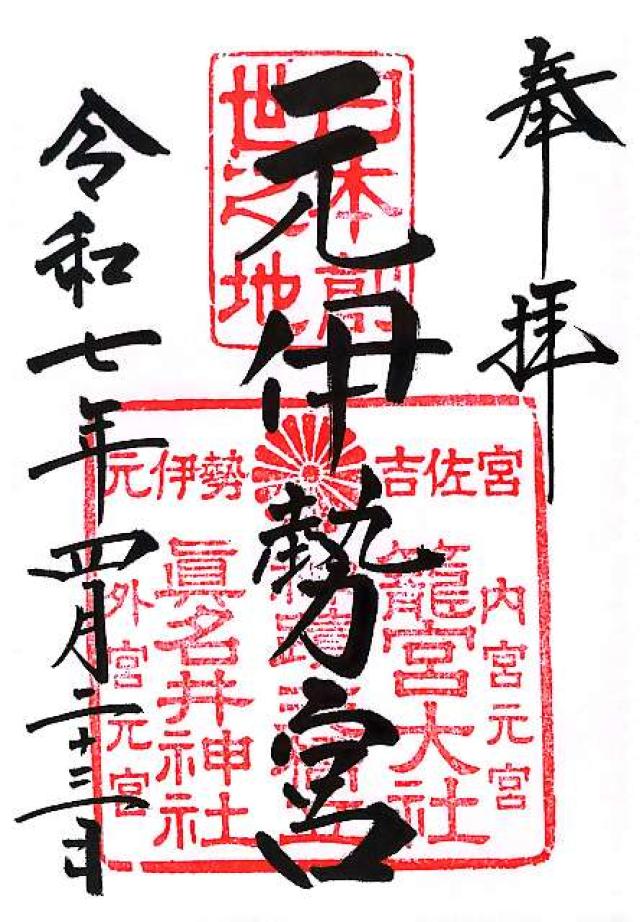 奉拝
元伊勢宮
令和七年四月二十三日
日本創
世之地
元伊勢 吉佐宮
内宮元宮
籠宮大社
眞名井神社
外宮元宮